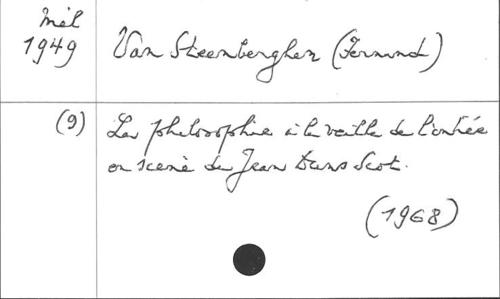 Mél
1949
Van Steenberghen (Fernand)
(9)
La philosophie à la veille de l'entrée
en scène de Jean Duns Scot.
(1968)